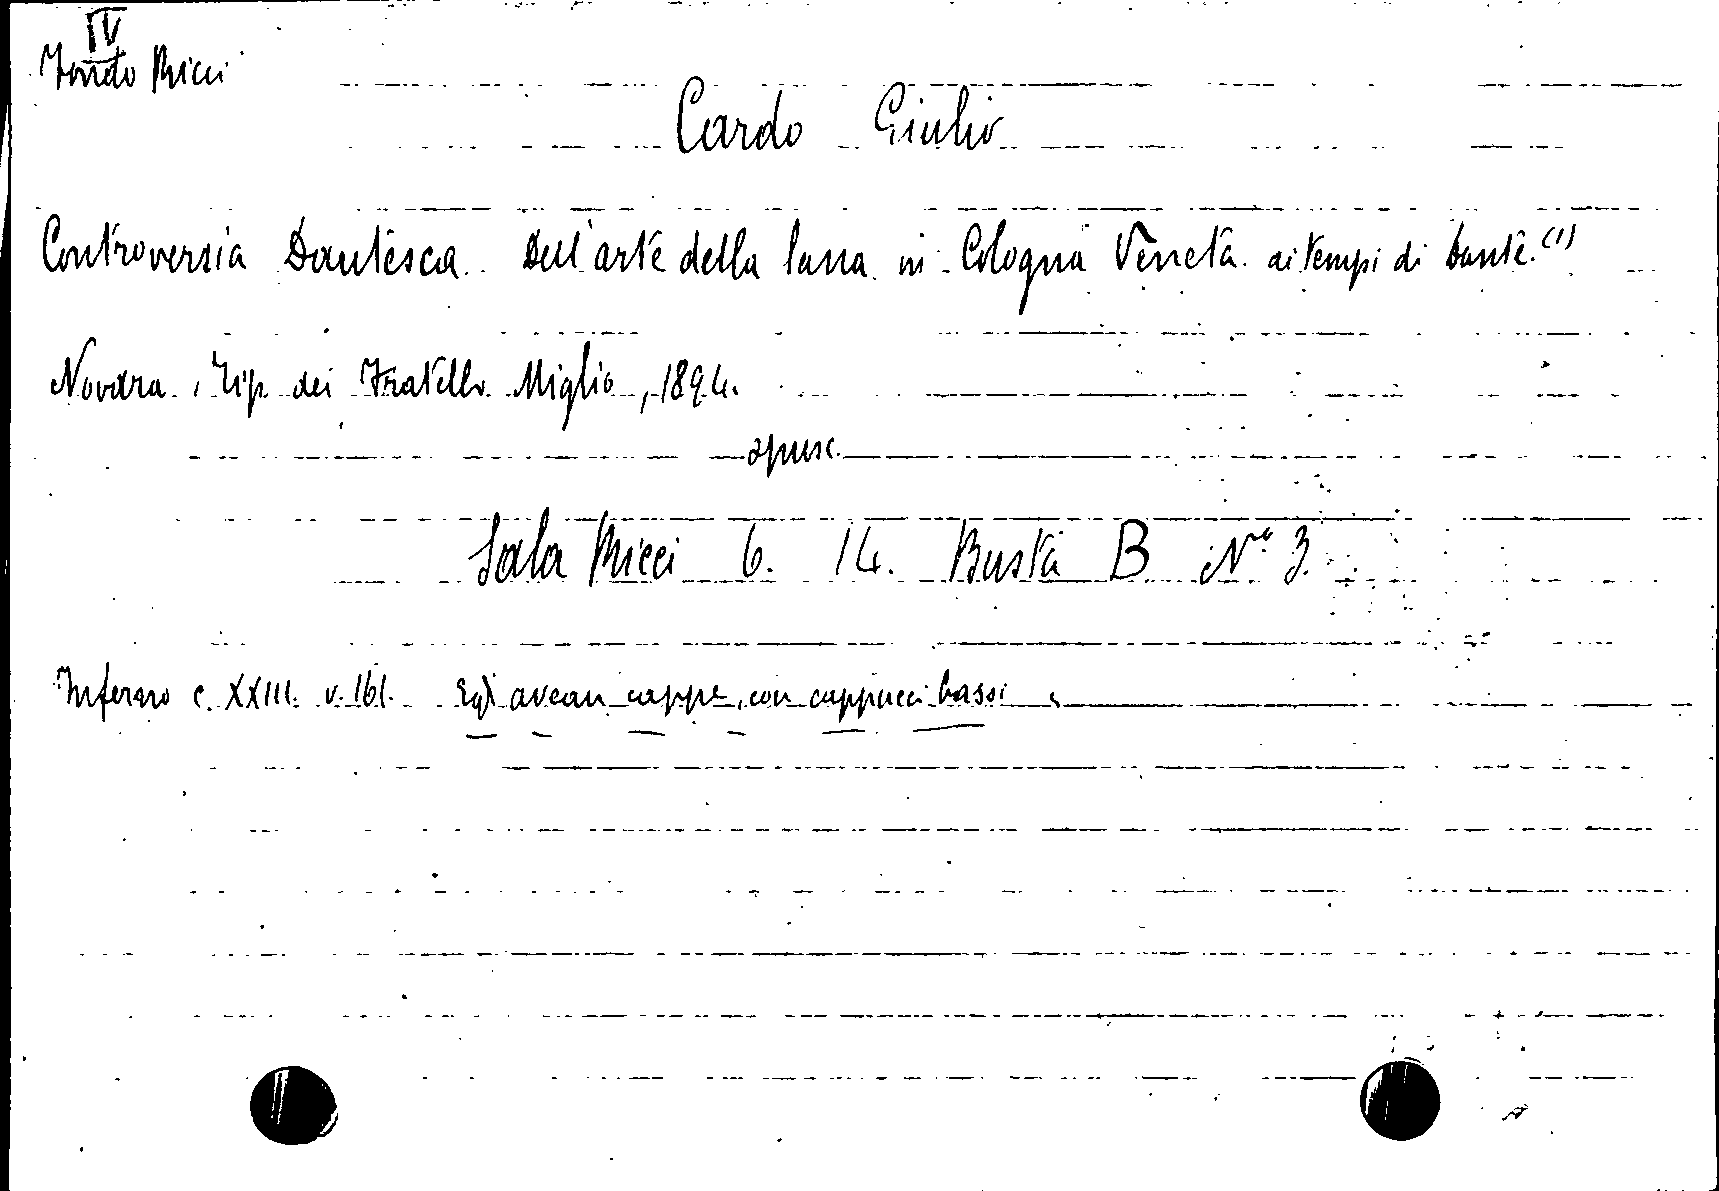 IV
Fondo Ricci
Cardo Giulio
Controversia Dantesca. Dell'arte della lana in Cologna Veneta ai tempi di Dante. (1)
Novara, Tip. dei Fratello Miglio, 1894.
opusc.
Sala Ricci 6. 14. Busta B N° 3.
Inferno c. XXIII. v. 161. Egli avean cappe, con cappucci bassi